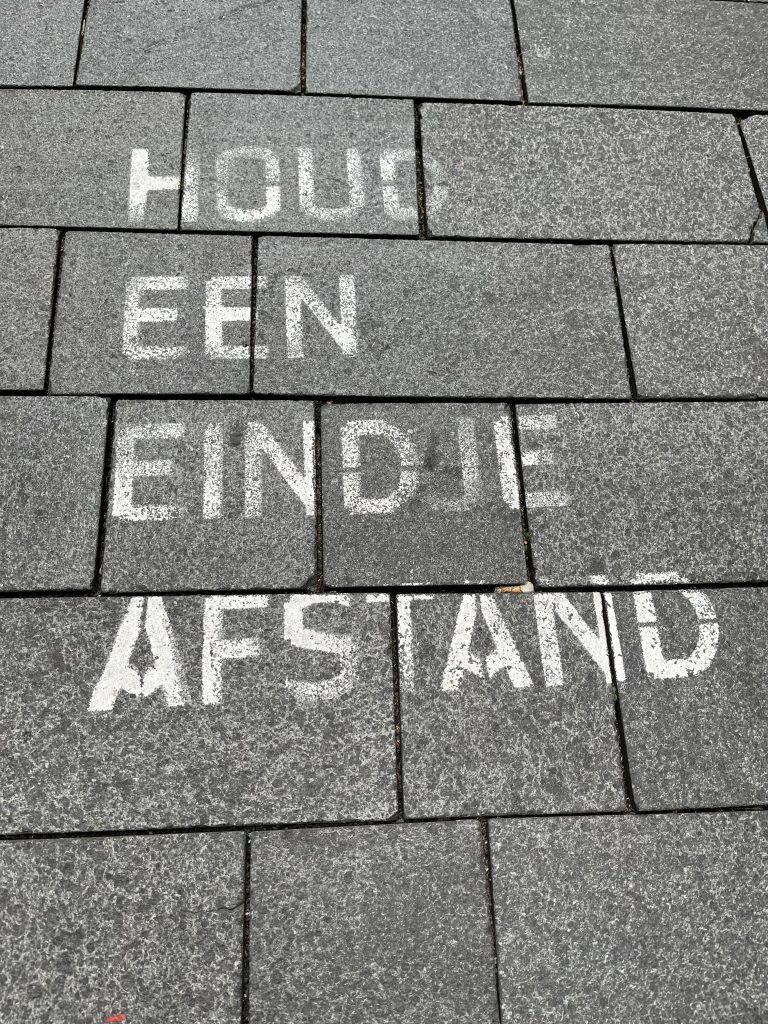 HOUD
EEN
EINDJE
AFSTAND